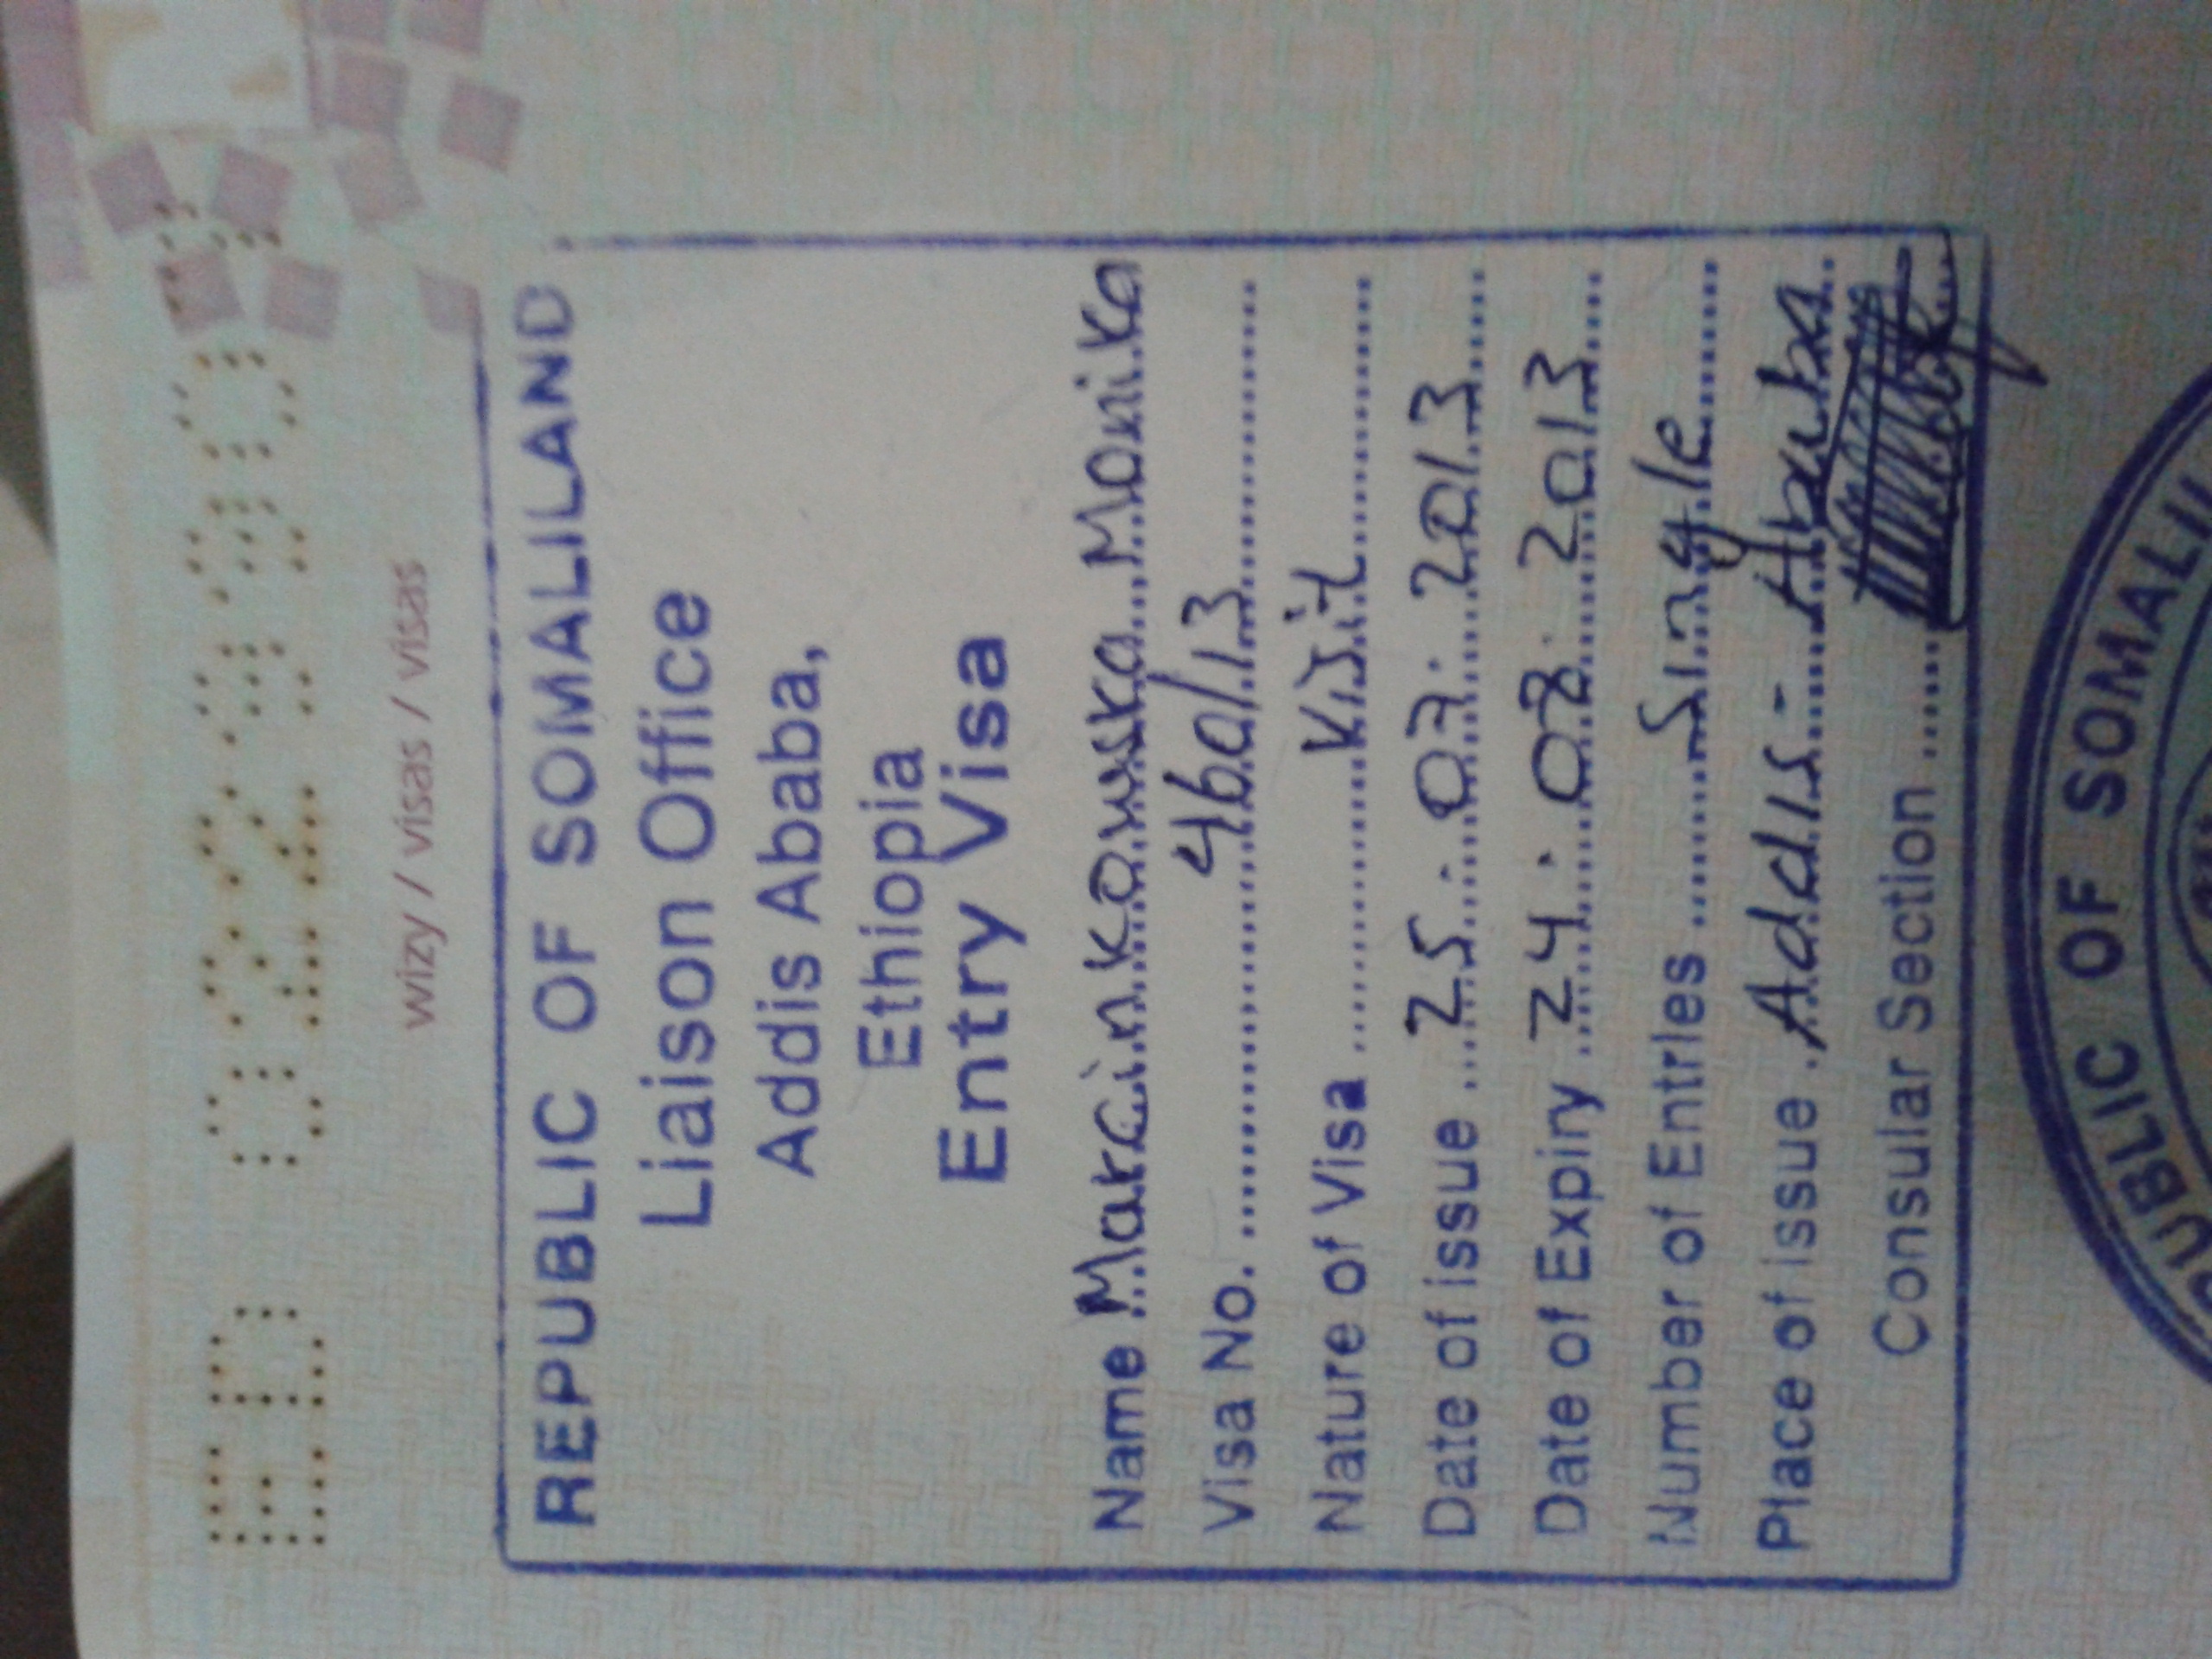 ED 0229907
wizy / visas / visas
REPUBLIC OF SOMALILAND
Liaison Office
Addis Ababa,
Ethiopia
Entry Visa
Name Marcinkowska Monika
Visa No. 460/13
Nature of Visa Visit
Date of issue 25 . 07 . 2013
Date of Expiry 24 . 08 . 2013
Number of Entries Single
Place of issue Addis - Ababa
Consular Section
PUBLIC OF SOMALIL